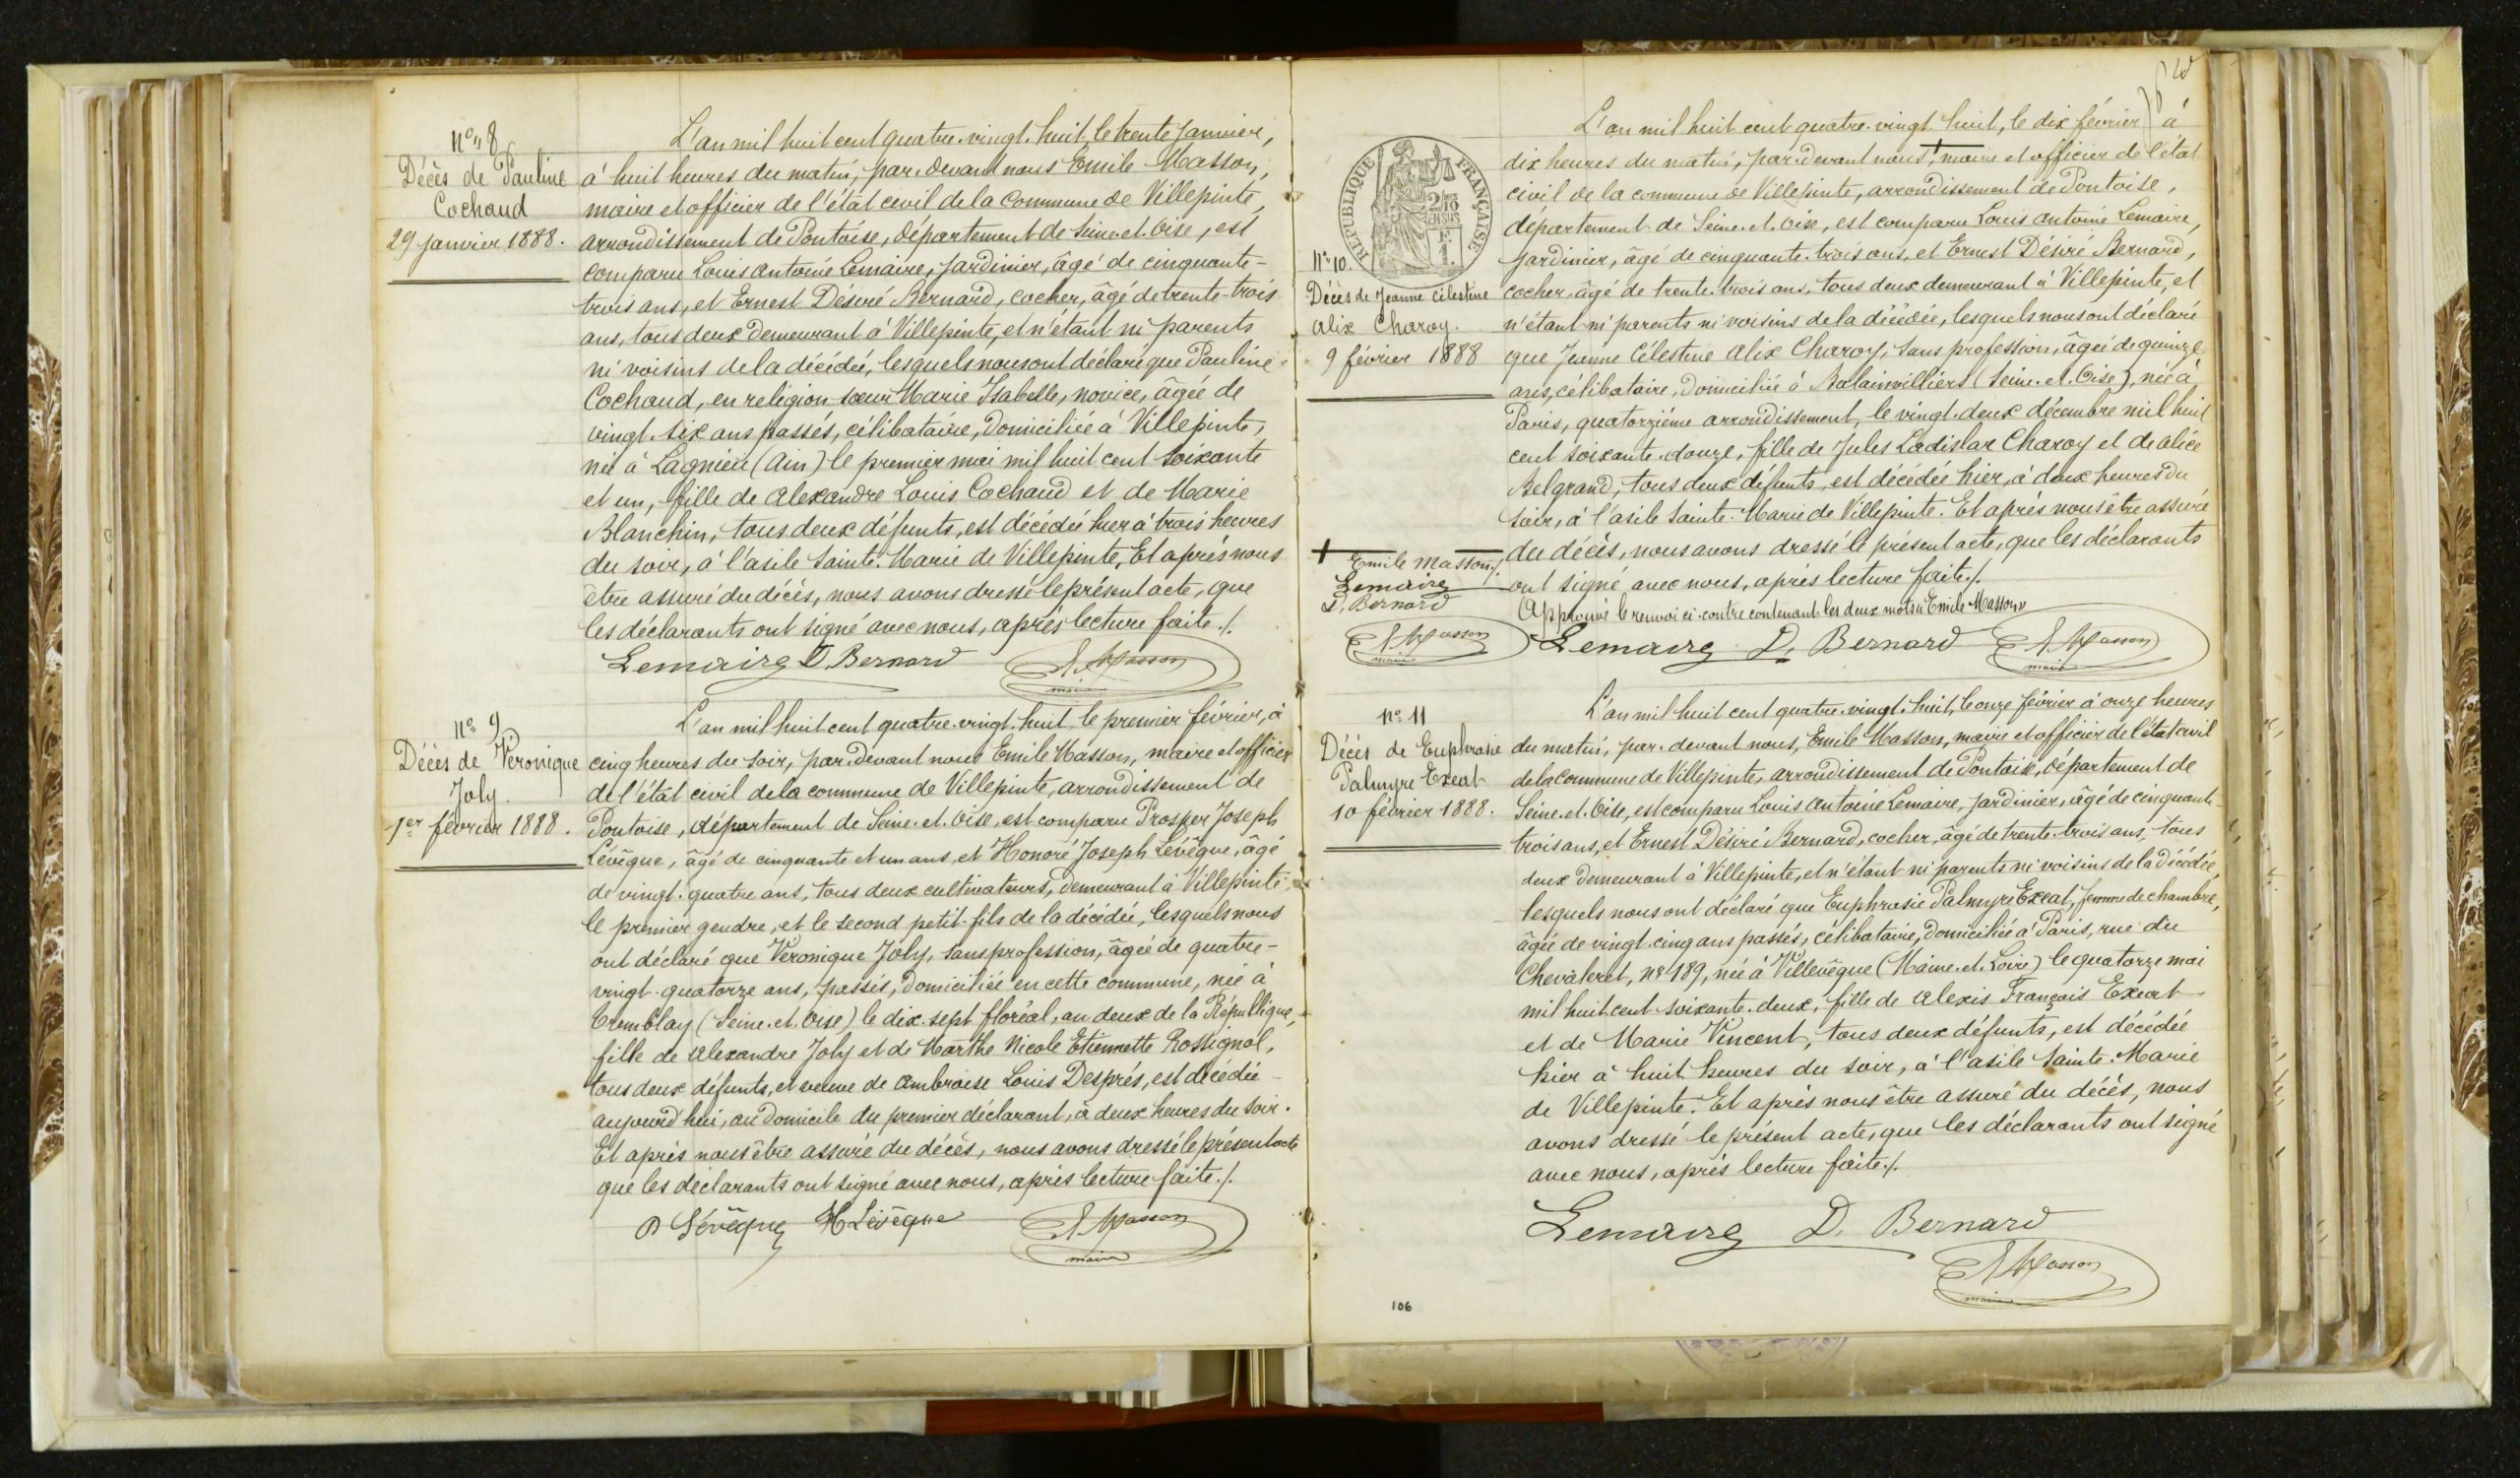 N° 8
Décès de Pauline
Cochaud
29 janvier 1888.
L'an mil huit cent quatre-vingt-huit le trente janvier,
à huit heures du matin, par-devant nous Emile Masson,
maire et officier de l'état civil de la commune de Villepinte,
arrondissement de Pontoise, département de Seine-et-Oise, est
comparu Louis Antoine Lemaire, jardinier, âgé de cinquante-
trois ans, et Ernest Désiré Bernard, cocher, âgé de trente-trois
ans, tous deux demeurant à Villepinte, et n'étant ni parents
ni voisins de la décédée, lesquels nous ont déclaré que Pauline
Cochaud, en religion sœur Marie Isabelle, novice, âgée de
vingt-six ans passés, célibataire, domiciliée à Villepinte,
née à Lagnieu (Ain) le premier mai mil huit cent soixante
et un, fille de Alexandre Louis Cochaud et de Marie
Blanchin, tous deux défunts, est décédée hier à trois heures
du soir, à l'asile Sainte-Marie de Villepinte, Et après nous
être assuré du décès, nous avons dressé le présent acte, que
les déclarants ont signé avec nous, après lecture faite./.
Lemaire D. Bernard E. Masson
maire
N° 9
Décès de Véronique
Joly.
1er février 1888.
L'an mil huit cent quatre-vingt-huit le premier février, à
cinq heures du soir, par-devant nous Emile Masson, maire et officier
de l'état civil de la commune de Villepinte, arrondissement de
Pontoise, département de Seine-et-Oise, est comparu Prosper Joseph
Lévêque, âgé de cinquante et un ans, et Honoré Joseph Lévêque, âgé
de vingt-quatre ans, tous deux cultivateurs, demeurant à Villepinte,
le premier gendre, et le second petit-fils de la décédée, lesquels nous
ont déclaré que Véronique Joly, sans profession, âgée de quatre-
vingt-quatorze ans, passés, domiciliée en cette commune, née à
Tremblay (Seine-et-Oise) le dix-sept floréal, an deux de la République,
fille de Alexandre Joly et de Marthe Nicole Etiennette Rossignol,
tous deux défunts, et veuve de Ambroise Louis Després, est décédée
aujourd'hui, au domicile du premier déclarant, à deux heures du soir.
Et après nous être assuré du décès, nous avons dressé le présent acte
que les déclarants ont signé avec nous, après lecture faite./.
P Lévêque H Lévêque E. Masson
maire
RÉPUBLIQUE FRANÇAISE
N° 10.
Décès de Jeanne Célestine
Alix Charoy.
9 février 1888
L'an mil huit cent quatre-vingt-huit, le dix février à
dix heures du matin, par-devant nous, maire et officier de l'état
civil de la commune de Villepinte, arrondissement de Pontoise,
département de Seine-et-Oise, est comparu Louis Antoine Lemaire,
jardinier, âgé de cinquante-trois ans, et Ernest Désiré Bernard,
cocher, âgé de trente-trois ans, tous deux demeurant à Villepinte, et
n'étant ni parents ni voisins de la décédée, lesquels nous ont déclaré
que Jeanne Célestine Alix Charoy, sans profession, âgée de quinze
ans, célibataire, domiciliée à Balainvilliers (Seine-et-Oise), née à
Paris, quatorzième arrondissement, le vingt-deux décembre mil huit
cent soixante-douze, fille de Jules Ladislar Charoy et de Alice
Belgrand, tous deux défunts, est décédée hier, à deux heures du
soir, à l'asile Sainte-Marie de Villepinte. Et après nous être assuré
du décès, nous avons dressé le présent acte, que les déclarants
ont signé avec nous, après lecture faite./.
Approuvé le renvoi ci-contre contenant les deux mots "Emile Masson"
Emile Masson./.
Lemaire
D. Bernard
E. Masson
maire
Lemaire D. Bernard E. Masson
maire
N° 11
Décès de Euphrasie
Palmyre Exeat
10 février 1888.
L'an mil huit cent quatre-vingt-huit, le onze février à onze heures
du matin, par-devant nous, Emile Masson, maire et officier de l'état civil
de la commune de Villepinte, arrondissement de Pontoise, département de
Seine-et-Oise, est comparu Louis Antoine Lemaire, jardinier, âgé de cinquante-
trois ans, et Ernest Désiré Bernard, cocher, âgé de trente-trois ans, tous
deux demeurant à Villepinte, et n'étant ni parents ni voisins de la décédée,
lesquels nous ont déclaré que Euphrasie Palmyre Exeat, femme de chambre,
âgée de vingt-cinq ans passés, célibataire, domiciliée à Paris, rue du
Chevaleret, n° 189, née à Villevêque (Maine-et-Loire) le quatorze mai
mil huit cent soixante-deux, fille de Alexis François Exeat
et de Marie Vincent, tous deux défunts, est décédée
hier à huit heures du soir, à l'asile Sainte-Marie
de Villepinte. Et après nous être assuré du décès, nous
avons dressé le présent acte, que les déclarants ont signé
avec nous, après lecture faite./.
Lemaire D. Bernard
E. Masson
maire
106